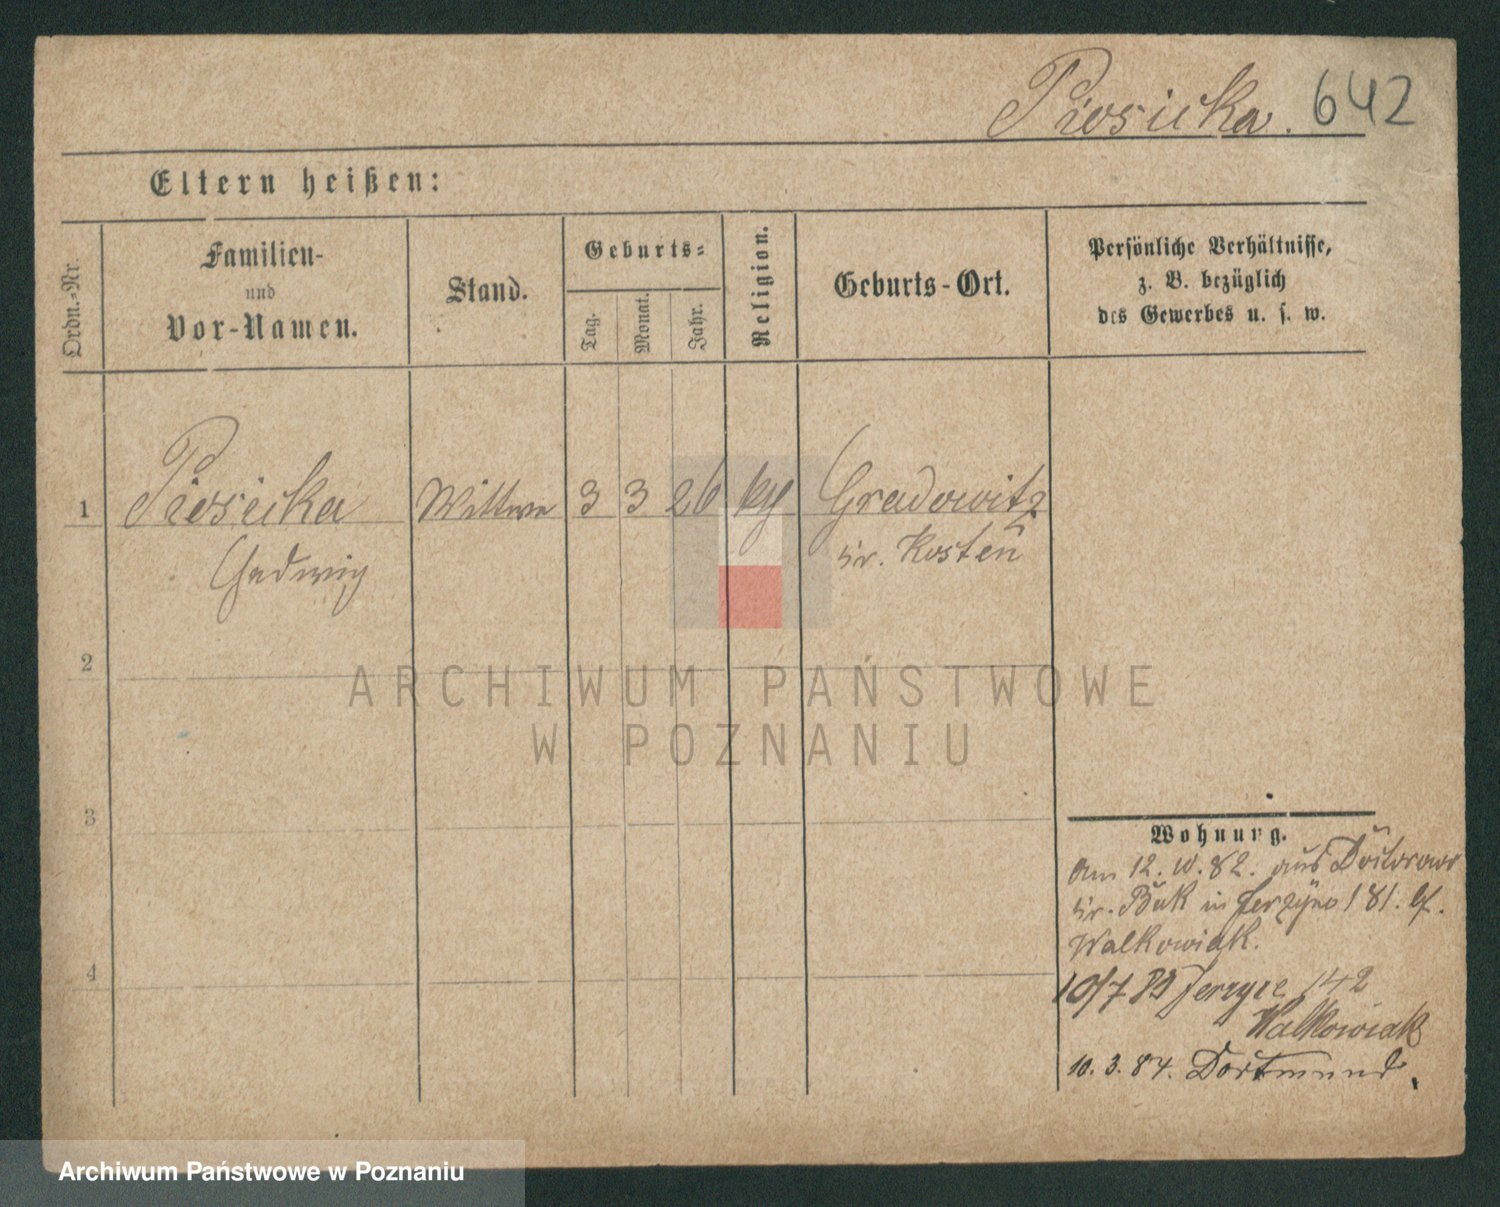 Piosicka. 642
Eltern heißen:
Ordn.-Nr.
Familien-
und
Vor-Namen.
Stand.
Geburts-
Tag.
Monat.
Jahr.
Religion.
Geburts-Ort.
Persönliche Verhältnisse,
z. B. bezüglich
des Gewerbes u. s. w.
1 Piosicka Wittwe 3 3 26 Gradowitz
Hedwig Kr. Kosten
2
3
4
ARCHIWUM PAŃSTWOWE
W POZNANIU
Wohnung.
Am 12. 10. 82. aus
Kr. Buk in 181. b/.
Walkowiak.
10/7 83 Jerzyce 142
Walkowiak
10. 3. 84. Dortmund.
Archiwum Państwowe w Poznaniu